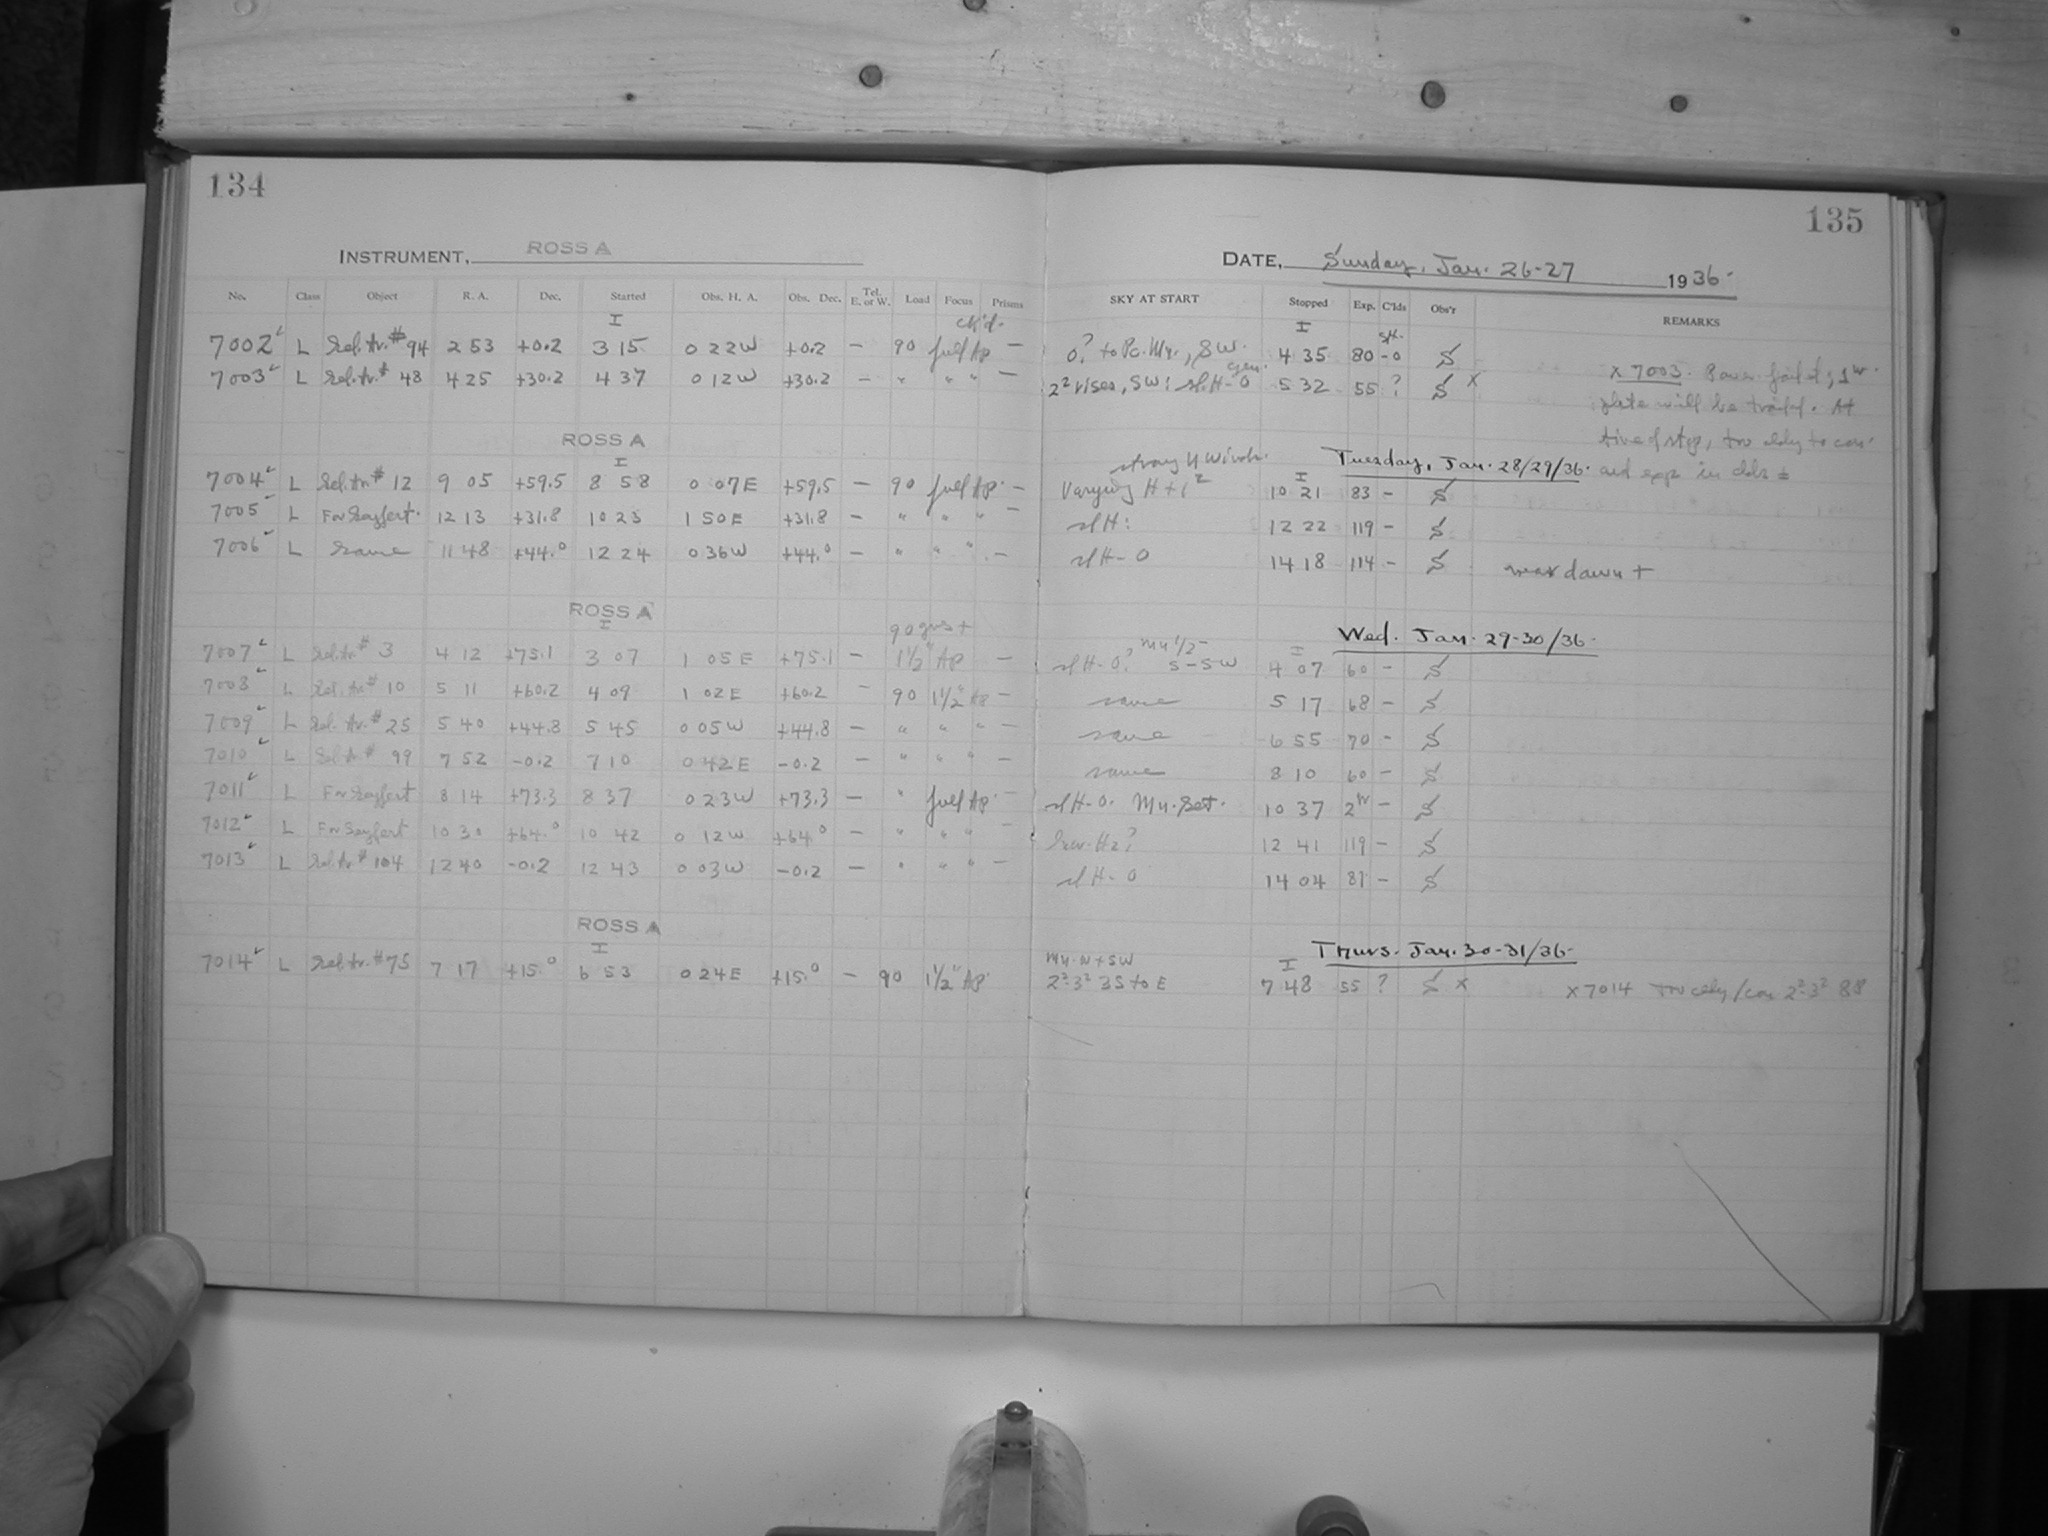 134
135
INSTRUMENT, ROSS A
DATE, Sunday, Jan. 26-27 1936.
No. Class Object R. A. Dec. Started Obs. H. A. Obs. Dec. Tel. E. or W. Load Focus Prisms SKY AT START Stopped Exp. C'lds Obs'r REMARKS
I ck'd. I
7002 L Sel. Ar. # 94 2 53 +0.2 3 15 0 22W +0.2 — 90 full Ap — 0? to Pc. Mn., SW. 4 35 80 -0 S
7003 L Sel. Ar. # 48 4 25 +30.2 4 37 0 12W +30.2 — " " " — 2² rises, SW: sl. H-0 5 32 55 ? S x x 7003. Power failed;
plate will be trailed. At
time of stop, too cldy to con-
ROSS A Tuesday, Jan. 28/29/36.
I strong N Winds. I and exp. in clds ±
7004 L Sel. Ar. # 12 9 05 +59.5 8 58 0 07E +59.5 — 90 full Ap. — Varying H+1² 10 21 83 - S
7005 L For Seyfert. 12 13 +31.8 10 23 1 50E +31.8 — " " " — sl H: 12 22 119 - S
7006 L Same 11 48 +44.0 12 24 0 36W +44.0 — " " " — sl H-0 14 18 114 - S near dawn +
ROSS A Wed. Jan. 29-30/36.
I Mn 1/2- I
7007 L Sel. Ar. # 3 4 12 +75.1 3 07 1 05E +75.1 — 1½" Ap — sl H-0? S-SW 4 07 60 - S
7008 L Sel. Ar. # 10 5 11 +60.2 4 09 1 02E +60.2 — 90 1½" Ap — same 5 17 68 - S
7009 L Sel. Ar. # 25 5 40 +44.8 5 45 0 05W +44.8 — " " " — same 6 55 70 - S
7010 L Sel. Ar. # 99 7 52 -0.2 7 10 0 42E -0.2 — " " " — same 8 10 60 - S
7011 L For Seyfert 8 14 +73.3 8 37 0 23W +73.3 — " full Ap. — sl H-0. Mn. Set. 10 37 2hr - S
7012 L For Seyfert 10 30 +64.0 10 42 0 12W +64.0 — " " " — 12 41 119 - S
7013 L Sel. Ar. # 104 12 40 -0.2 12 43 0 03W -0.2 — " " " — sl H-0 14 04 81 - S
ROSS A Thurs. Jan. 30-31/36.
I Mn. W + SW I
7014 L Sel. Ar. #75 7 17 +15.0 6 53 0 24E +15.0 — 90 1½" Ap. 2²-3² 3S to E 7 48 55 ? S x x 7014 too cldy